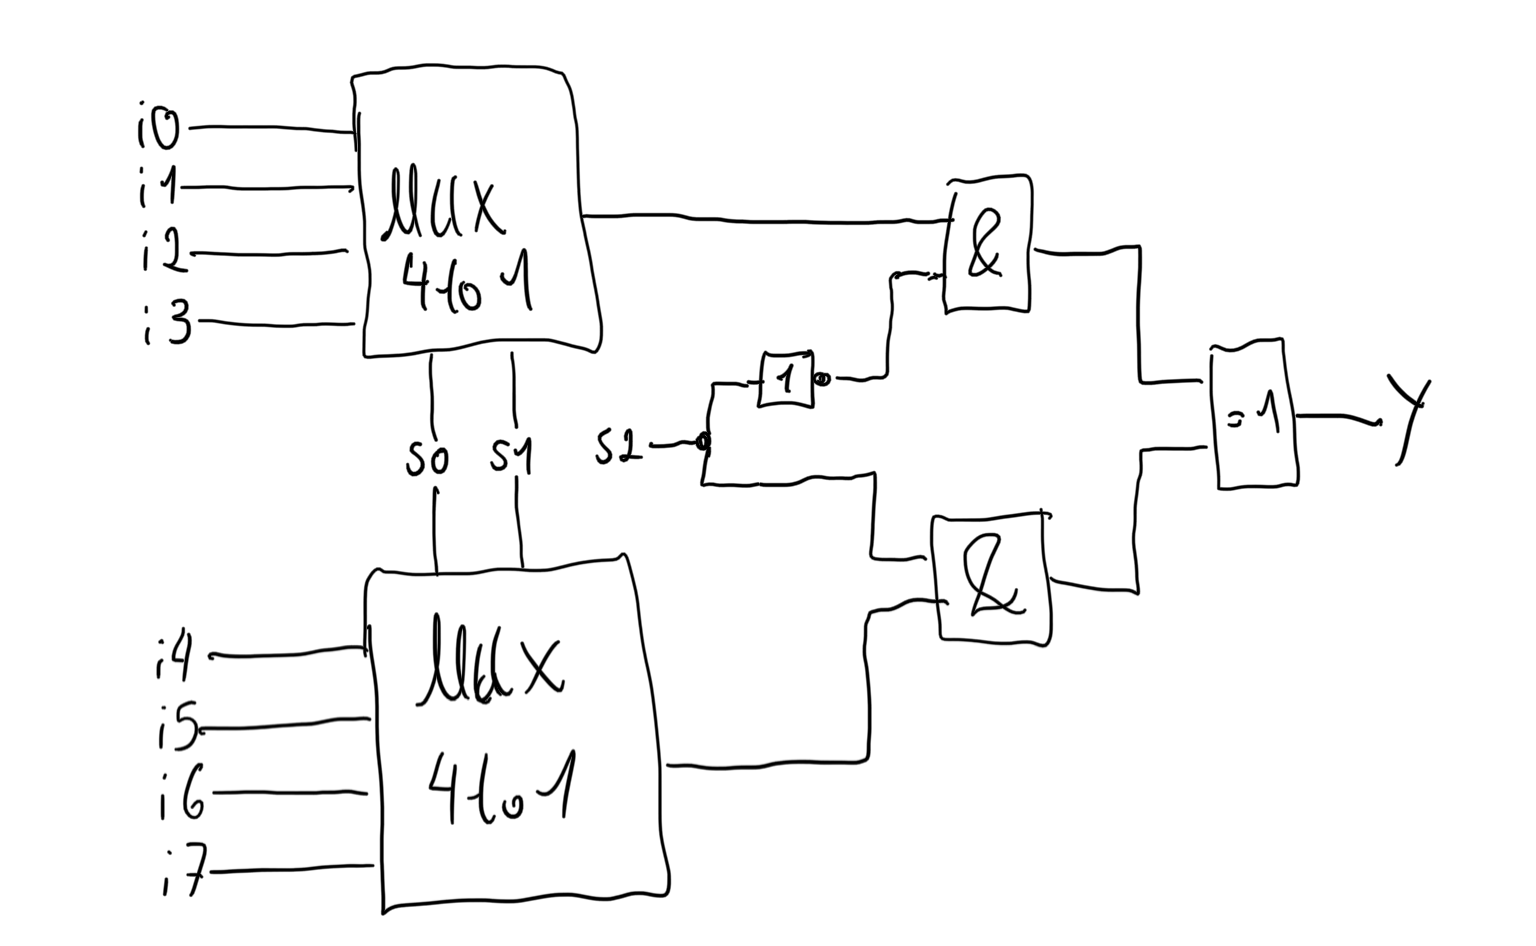 i0
i1
i2
i3
Mux
4to1
&
1
S0 S1
S2
=1
Y
&
i4
i5
i6
i7
Mux
4to1